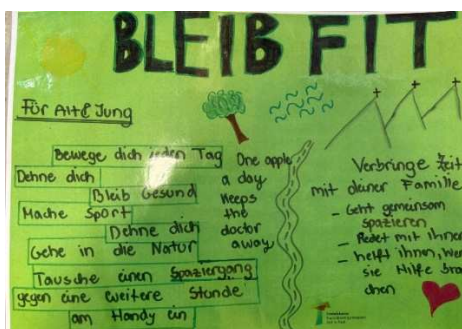 BLEIB FIT
Für Alt & Jung
Bewege dich jeden Tag
Dehne dich
Bleib Gesund
Mache Sport
Dehne dich
Gehe in die Natur
Tausche einen Spaziergang
gegen eine weitere Stunde
am Handy ein
One apple
a day
keeps
the
doctor
away
Verbringe Zeit
mit deiner Familie
- Geht gemeinsam
spazieren
- Redet mit ihnen
- helft ihnen, wen
sie Hilfe brau
chen